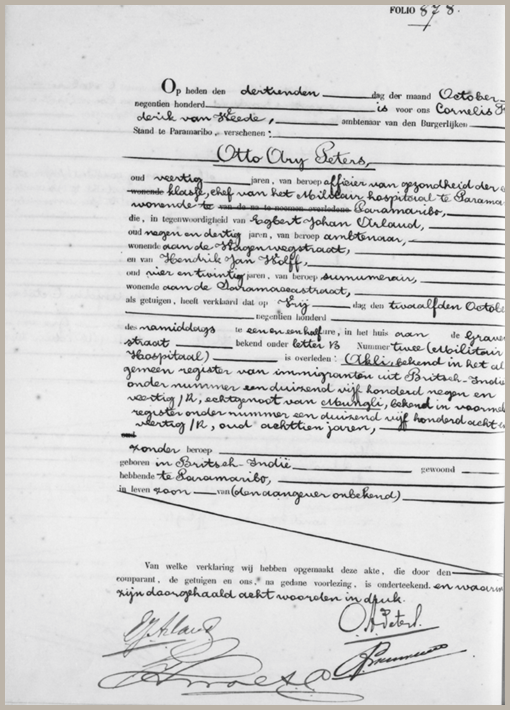 FOLIO 878.
Op heden den dertienden dag der maand October
negentien honderd is voor ons Cornelis F
derik van Heede, ambtenaar van den Burgerlijken
Stand te Paramaribo, verschenen:
Otto Ary Peters,
oud veertig jaren, van beroep officier van gezondheid der
wonende klasse, chef van het Militair hospitaal te Parama
wonende te van de na te noemen overledene Paramaribo,
die, in tegenwoordigheid van Egbert Johan Arlaud,
oud negen en dertig jaren, van beroep ambtenaar,
wonende aan de Wagenwegstraat,
en van Hendrik Jan Wolff,
oud vier en twintig jaren, van beroep surnumerair,
wonende aan de Paramaccastraat,
als getuigen, heeft verklaard dat op Vrij dag den twaalfden Octobe
negentien honderd
des namiddags te een en een half ure, in het huis aan de Grave
straat bekend onder letter B Nummer twee (Militair
Hospitaal) is overleden: Akli, bekend in het al
gemeen register van immigranten uit Britsch-Indië
onder nummer een duizend vijf honderd negen en
veertig /R, echtgenoot van Mungli, bekend in voormel
register onder nummer een duizend vijf honderd acht e
veertig /R, oud achttien jaren,
zonder beroep
geboren in Britsch-Indië gewoond
hebbende te Paramaribo,
in leven zoon van (den aangever onbekend)
Van welke verklaring wij hebben opgemaakt deze akte, die door den
comparant, de getuigen en ons, na gedane voorlezing, is onderteekend. en waarin
zijn doorgehaald acht woorden in druk.
EJArlaud
O.A.Peters.